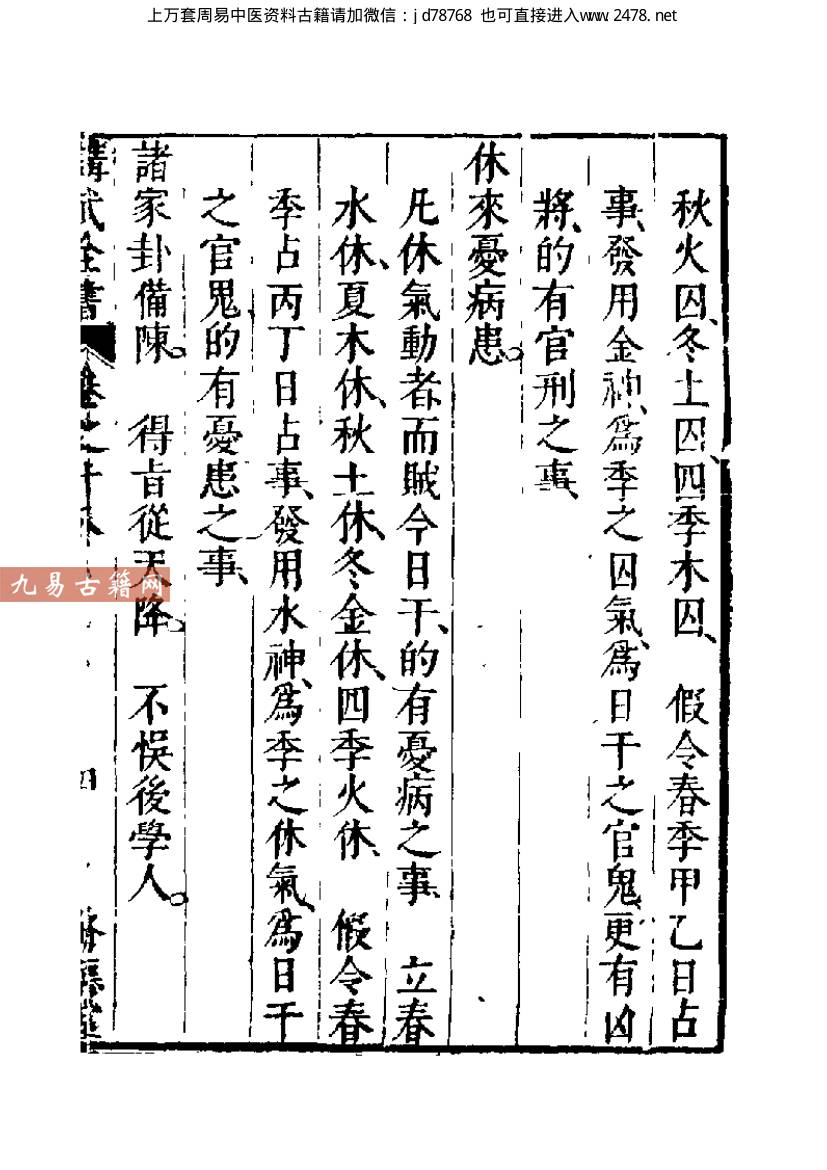 上万套周易中医资料古籍请加微信：jd78768 也可直接进入www.2478.net
秋火囚、冬土囚、四季木囚、　假令春季甲乙日占
事、發用金神、爲季之囚氣、爲日干之官鬼、更有凶
將、的有官刑之事、
休來憂病患。
凡休氣動者而賊今日干、的有憂病之事　立春
水休、夏木休、秋土休、冬金休、四季火休、　假令春
季占丙丁日占事、發用水神、爲季之休氣、爲日干
之官鬼、的有憂患之事、
諸家卦備陳。　得旨從天降。　不悞後學人。
全書 卷之十 四
九易古籍网